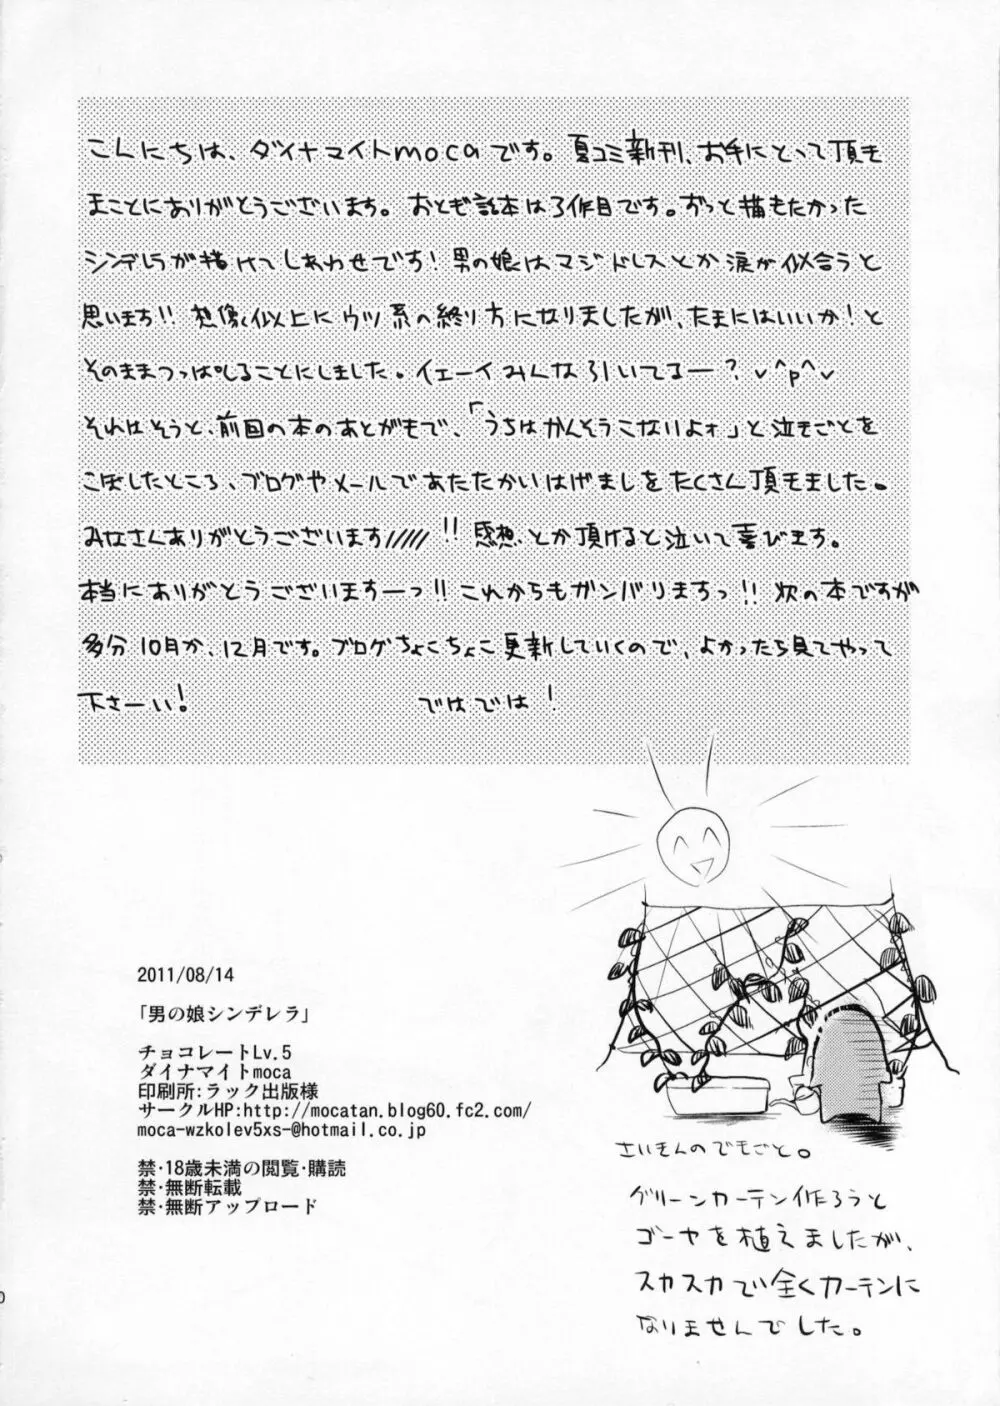 こんにちは、ダイナマイトmocaです。夏コミ新刊、お手にとって頂き
まことにありがとうございます。おとぎ話本は3作目です。ずっと描きたかった
シンデレラが描けてしあわせです!男の娘はマジドレスとか涙が似合うと
思います!!想像以上にウツ系の終り方になりましたが、たまにはいいか!と
そのままつっぱしることにしました。イェーイみんな引いてるー?v^p^v
それはそうと、前回の本のあとがきで、「うちはかんそうこないよォ」と泣きごとを
こぼしたところ、ブログやメールであたたかいはげましをたくさん頂きました。
みなさんありがとうございます/////!!感想とか頂けると泣いて喜びます。
本当にありがとうございますーっ!!これからもガンバリますっ!!次の本ですが
多分10月か、12月です。ブログちょこちょこ更新していくので、よかったら見てやって
下さーい!　ではでは!
2011/08/14
「男の娘シンデレラ」
チョコレートLv.5
ダイナマイトmoca
印刷所:ラック出版様
サークルHP:http://mocatan.blog60.fc2.com/
moca-wzkolev5xs-@hotmail.co.jp
禁・18歳未満の閲覧・購読
禁・無断転載
禁・無断アップロード
さいきんのできごと。
グリーンカーテン作ろうと
ゴーヤを植えましたが、
スカスカで全くカーテンに
なりませんでした。